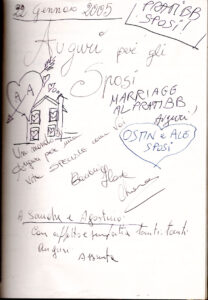 22 Gennaio 2005
PRATIBB
SPOSI!
Auguri per gli
Sposi
A A
MARRIAGE
AL PRATIBB
Auguri,
OSTIN e ALE
SPOSI
Un mondo
auguri per una
vita SPECIALE come voi
A Sandra e Agostino
con affetto e simpatia tanti tanti
auguri
Assunta